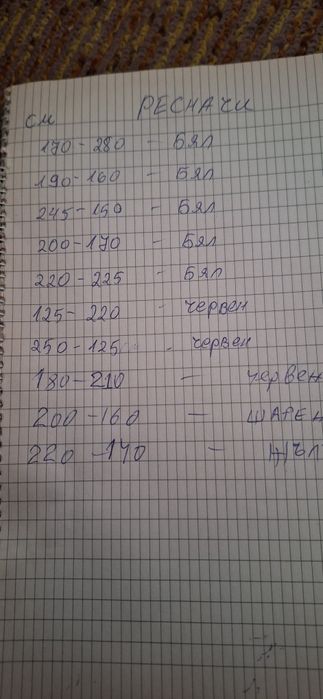 см РЕСНАЧИ
170-280 - Бял
190-160 - Бял
245-150 - Бял
200-170 - Бял
220-225 - Бял
125-220 - червен
250-125 - червен
180-210 - червен
200-160 - ШАРЕН
220-140 - ЖЪЛ